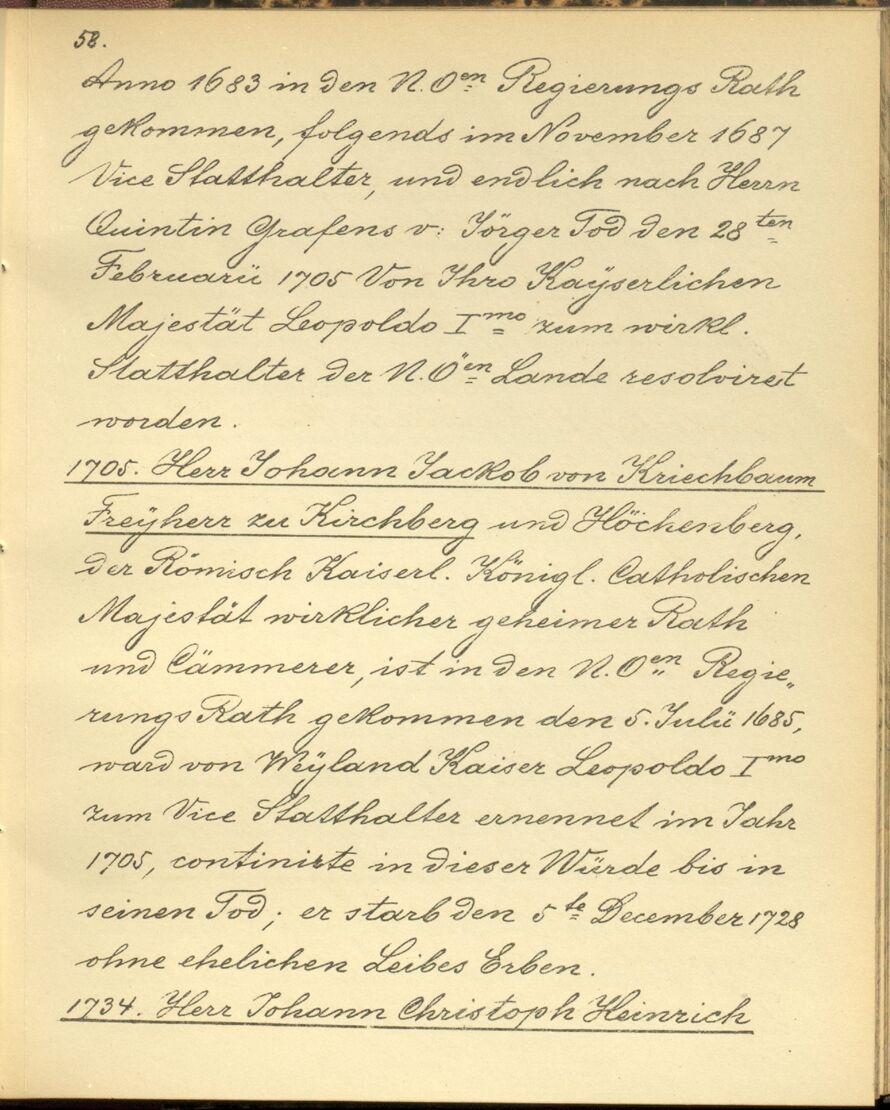 58.
Anno 1683 in den N. Oen Regierungs Rath
gekommen, folgends im November 1687
Vice Statthalter, und endlich nach Herrn
Quintin Grafens v: Jörger Tod den 28ten
Februarii 1705 Von Ihro Kaÿserlichen
Majestät Leopoldo Imo zum wirkl.
Statthalter der N. Öen Lande resolviret
worden.
1705. Herr Johann Jackob von Kriechbaum
Freÿherr zu Kirchberg und Höchenberg,
der Römisch Kaiserl. Königl. Catholischen
Majestät wirklicher geheimer Rath
und Cämmerer, ist in den N. Oen Regie„
rungs Rath gekommen den 5. Julii 1685,
ward von Weÿland Kaiser Leopoldo Imo
zum Vice Statthalter ernennet im Jahr
1705, continirte in dieser Würde bis in
seinen Tod; er starb den 5te December 1728
ohne ehelichen Leibes Erben.
1734. Herr Johann Christoph Heinrich